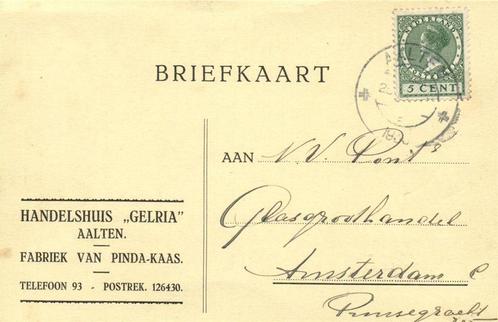 NEDERLAND
5 CENT
AALTEN
BRIEFKAART
AAN N.V. Pont's
Glasgroothandel
Amsterdam C
Prinsegracht
HANDELSHUIS „GELRIA”
AALTEN.
FABRIEK VAN PINDA-KAAS.
TELEFOON 93 - POSTREK. 126430.